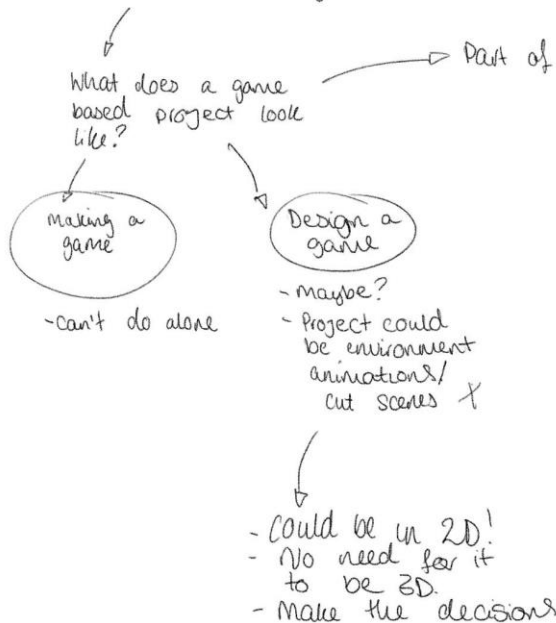 What does a game
based project look
like?
Part of
Making a
game
- Can't do alone
Design a
game
- Maybe?
- Project could
be environment
animations/
cut scenes X
- Could be in 2D!
- No need for it
to be 3D.
- Make the decisions